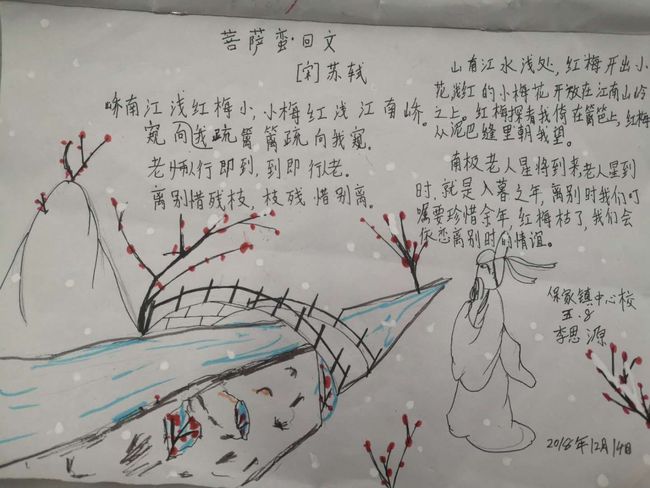 菩萨蛮·回文
[宋]苏轼
峤南江浅红梅小,小梅红浅江南峤。
窥向我疏篱,篱疏向我窥。
老人行即到,到即行人老。
离别惜残枝,枝残惜别离。
山南江水浅处,红梅开出小
花,浅红的小梅花开放在江南山岭
之上。红梅探着我倚在篱笆上,红梅
从泥巴缝里朝我望。
南极老人星将到来,老人星到
时,就是入暮之年,离别时我们叮
嘱要珍惜余年,红梅枯了,我们会
依恋离别时的情谊。
保家镇中心校
五.8
李思源
2018年12月14日